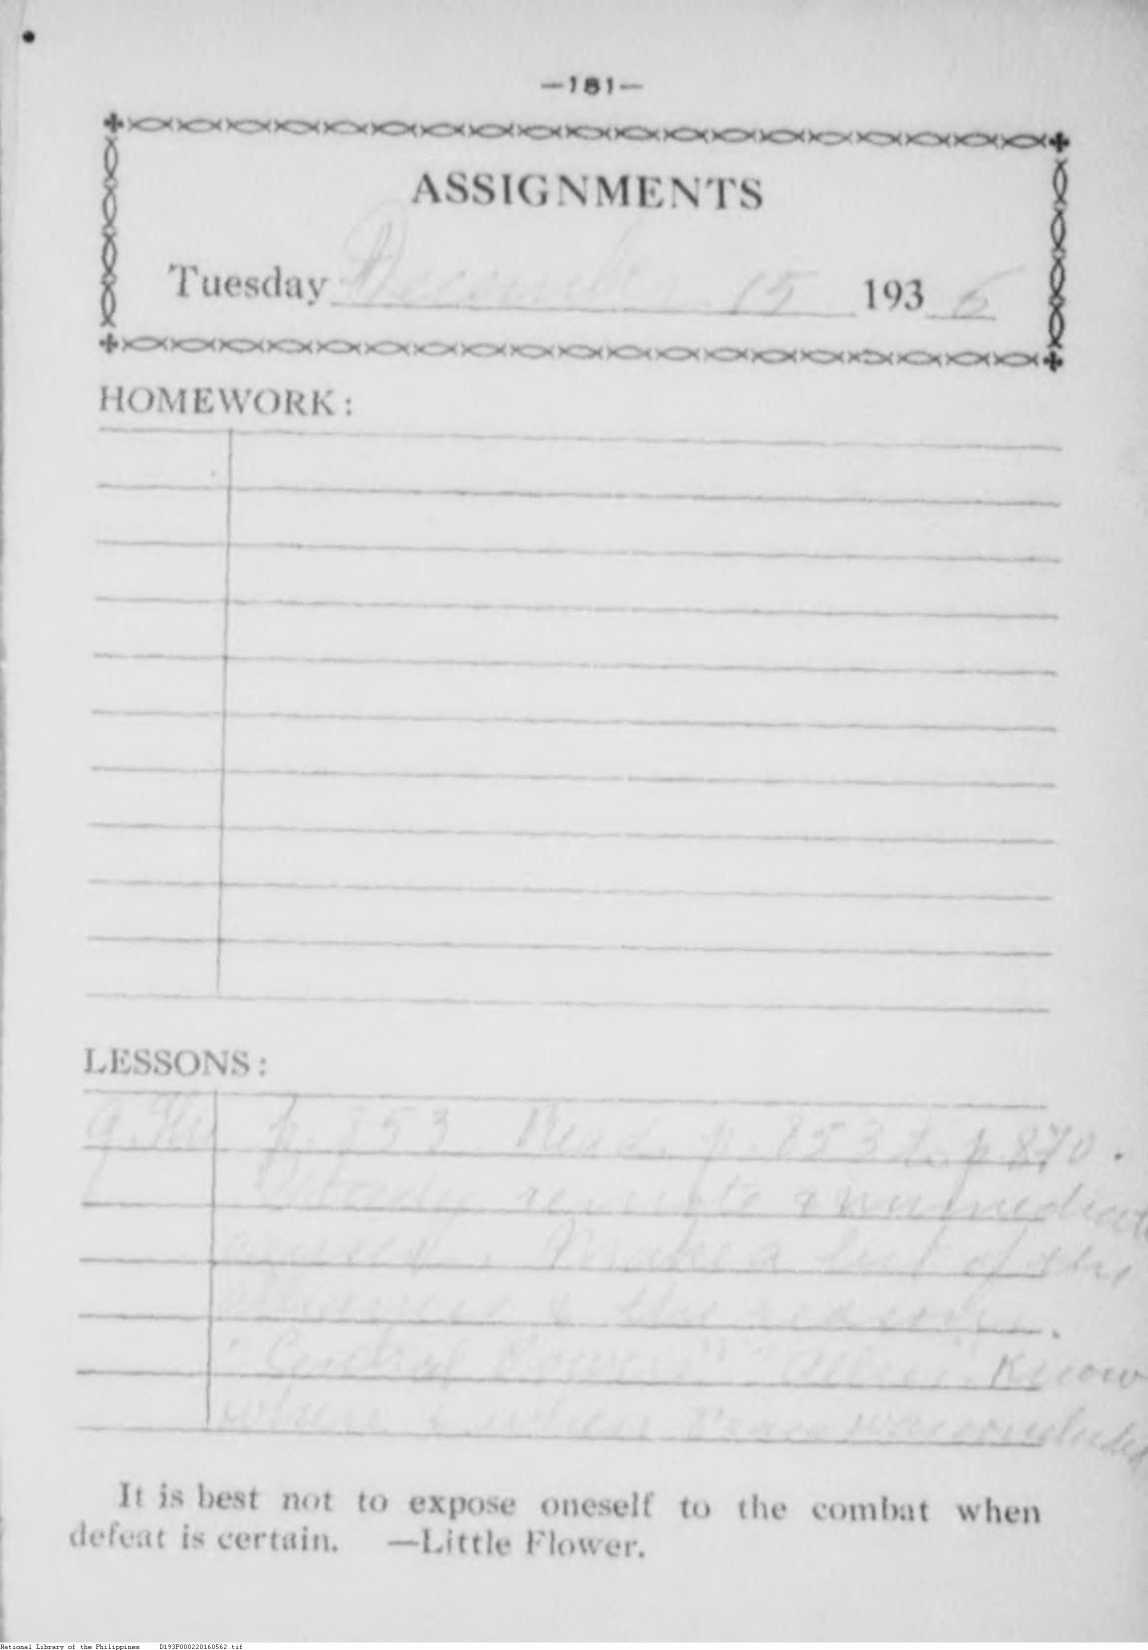 —181—
ASSIGNMENTS
Tuesday December 15 1936
HOMEWORK:
LESSONS:
p. 853 Read p. 853 to p 870.
Study remote & immediate
causes. Make a list of the
alliances & the reasons.
"Central Powers" "Allies". Know
where & when Peace was concluded
It is best not to expose oneself to the combat when
defeat is certain. —Little Flower.
National Library of the Philippines D193P000220160562.tif